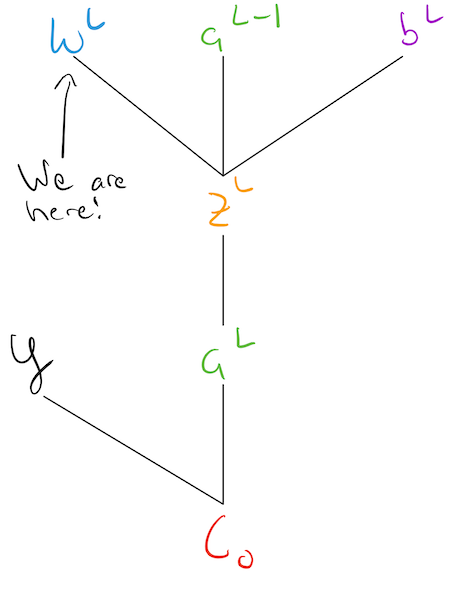 w^L a^{L-1} b^L
We are
here!
z^L
y a^L
C_0